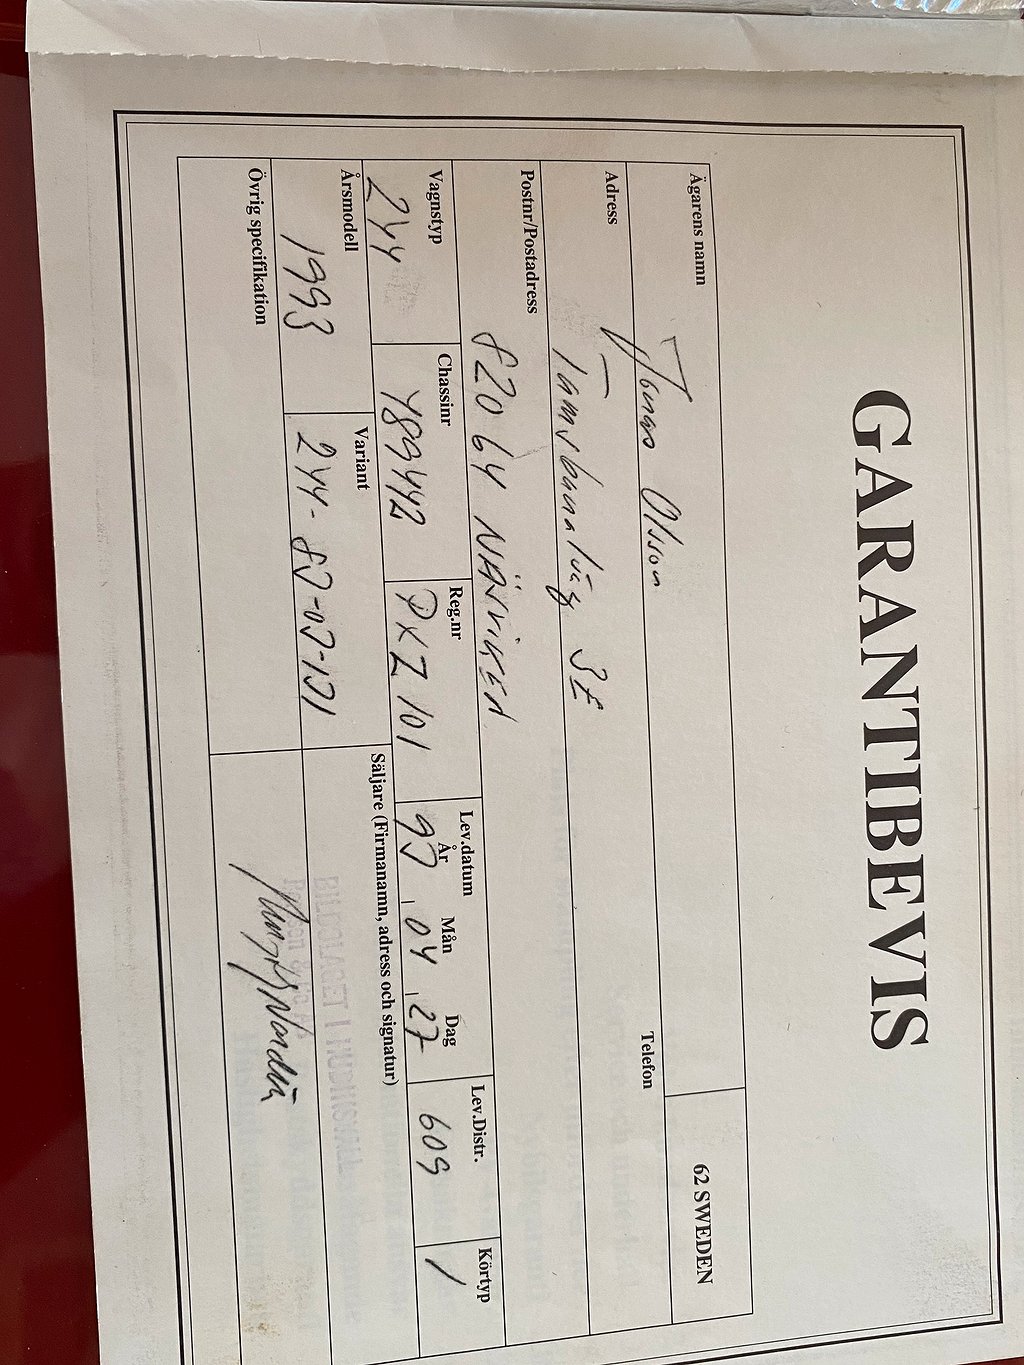 GARANTIBEVIS
62 SWEDEN
Ägarens namn
Jonas Olsson
Telefon
Adress
3E
Postnr/Postadress
820 64 NÄSVIKEN
Vagnstyp Chassinr Reg.nr Lev.datum Lev.Distr. Körtyp
År Mån Dag
244 PXZ 101 93 04 27 609 1
Årsmodell Variant Säljare (Firmanamn, adress och signatur)
1993
BILBOLAGET I HUDIKSVALL
Övrig specifikation